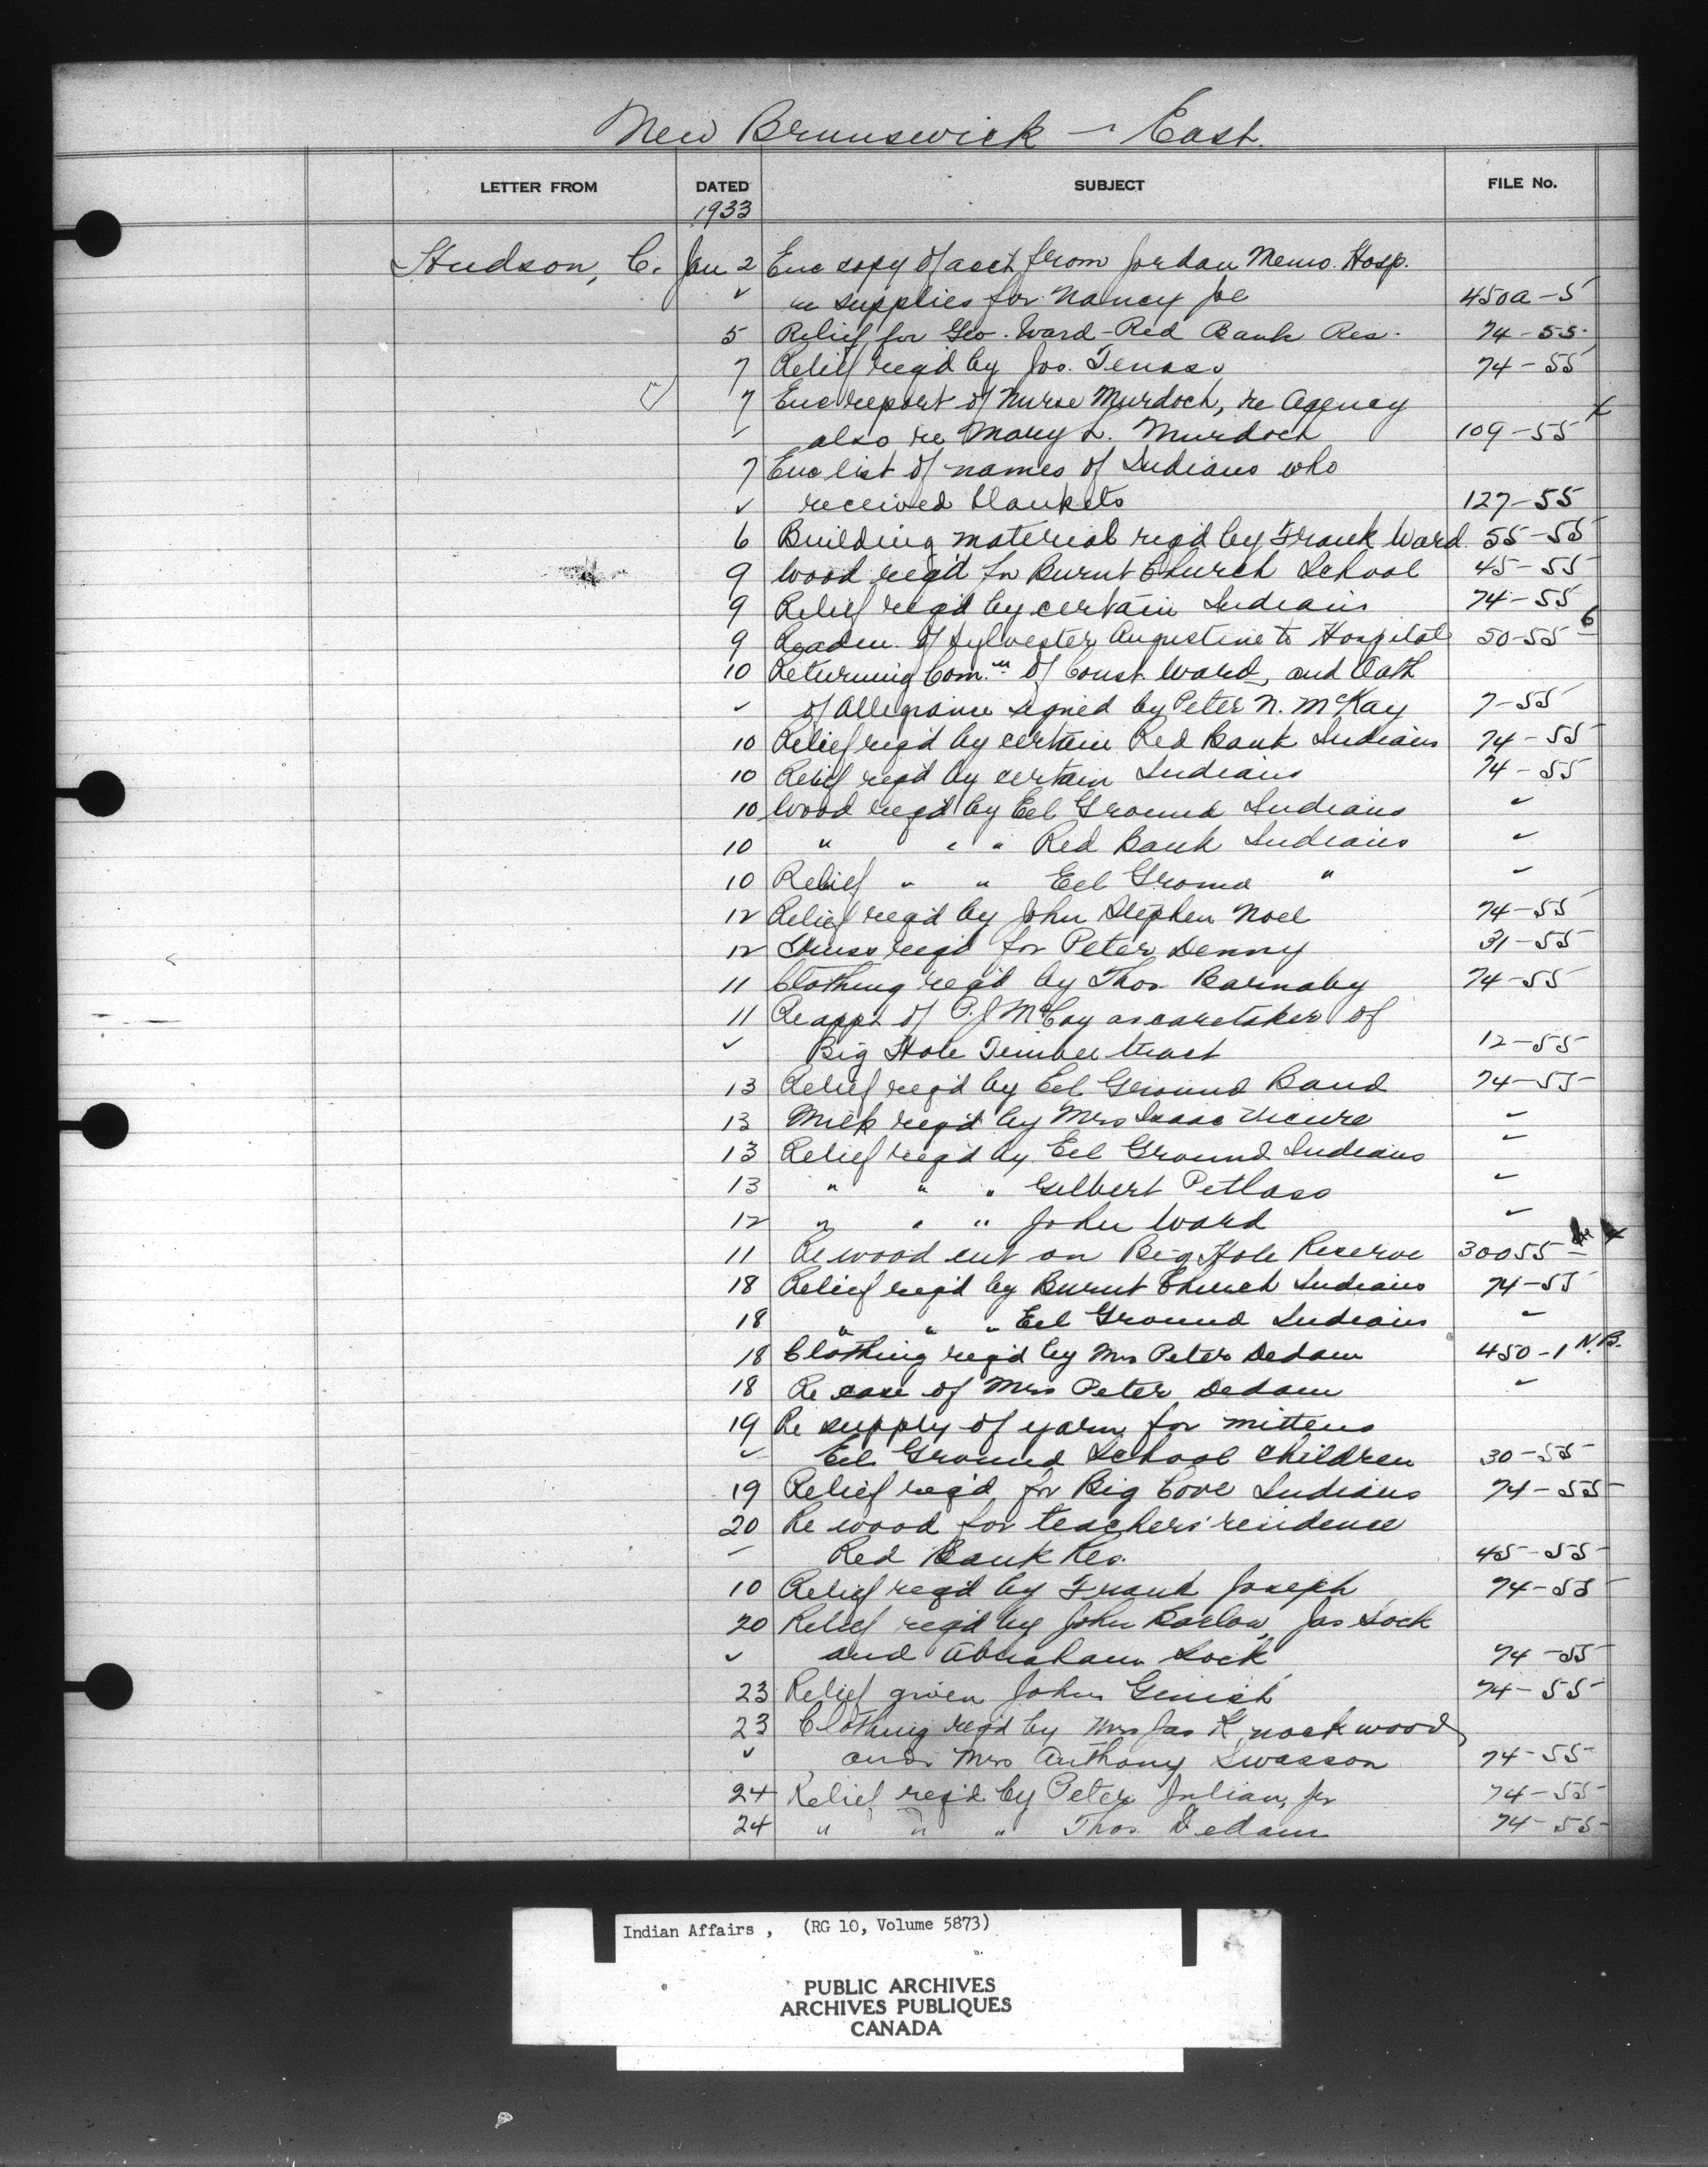 New Brunswick - East.
LETTER FROM DATED SUBJECT FILE No.
1933
Hudson, C. Jan 2 Enc copy of acct from Jordan Memo. Hosp.
✓ re supplies for Nancy Joe 450a-5
5 Relief for Geo. Ward - Red Bank Res. 74-55
7 Relief reqd by Jos. Tenass 74-55
7 Enc report of Nurse Murdoch, re Agency
✓ also re Mary L. Murdoch 109-55
7 Enc list of names of Indians who
✓ received blankets 127-55
6 Building material reqd by Frank Ward. 55-55
9 Wood reqd for Burnt Church School 45-55
9 Relief req'd by certain Indians 74-55
9 Readm. of Sylvester Augustine to Hospital 50-55-6
10 Returning Com.n of Const. Ward, and Oath
✓ of Allegiance signed by Peter N. McKay 7-55
10 Relief reqd by certain Red Bank Indians 74-55
10 Relief reqd by certain Indians 74-55
10 Wood reqd by Eel Ground Indians ✓
10 " " " Red Bank Indians ✓
10 Relief " " Eel Ground " ✓
12 Relief reqd by John Stephen Noel 74-55
12 Truss reqd for Peter Denny 31-55
11 Clothing reqd by Thos. Barnaby 74-55
11 Re appt of P.J. McCoy as caretaker of
✓ Big Hole Timber tract 12-55
13 Relief req'd by Eel Ground Band 74-55
13 Milk req'd by Mrs Isaac ✓
13 Relief reqd by Eel Ground Indians ✓
13 " " " Gilbert Petlass ✓
12 " " " John Ward ✓
11 Re wood cut on Big Hole Reserve 30055
18 Relief reqd by Burnt Church Indians 74-55
18 " " " Eel Ground Indians ✓
18 Clothing reqd by Mrs Peter Dedam 450-1 N.B.
18 Re case of Mrs Peter Dedam ✓
19 Re supply of yarn for mittens
✓ Eel Ground School children 30-55
19 Relief req'd for Big Cove Indians 74-55
20 Re wood for teachers' residence
✓ Red Bank Res. 45-55
10 Relief req'd by Frank Joseph 74-55
20 Relief req'd by John Barlow, Jas Sock
✓ and Abraham Sock 74-55
23 Relief given John Genish 74-55
23 Clothing req'd by Mrs Jas Knockwood
✓ and Mrs Anthony Swasson 74-55
24 Relief req'd by Peter Julian, jr 74-55
24 " " " Thos. Dedam 74-55
Indian Affairs , (RG 10, Volume 5873)
PUBLIC ARCHIVES
ARCHIVES PUBLIQUES
CANADA